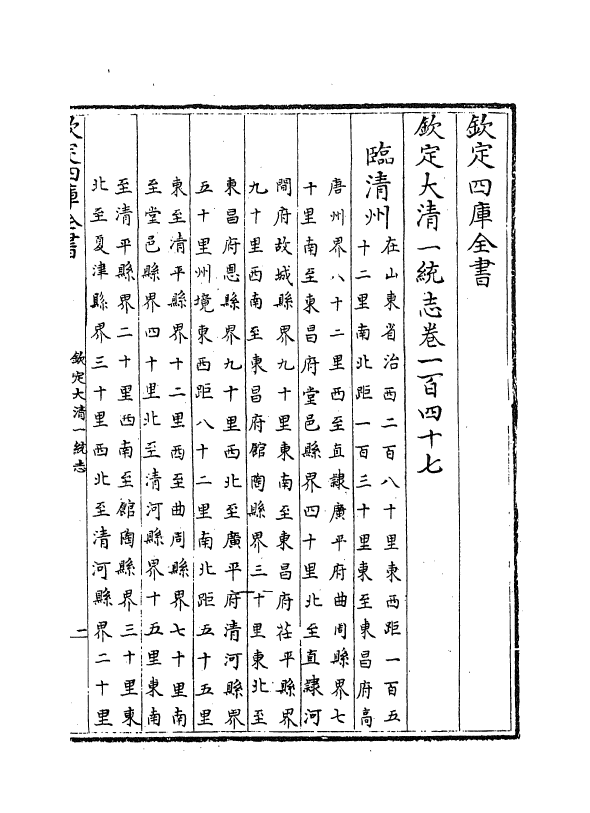 欽定四庫全書
欽定大清一統志卷一百四十七
臨清州
在山東省治西二百八十里東西距一百五
十二里南北距一百三十里東至東昌府高
唐州界八十二里西至直隸廣平府曲周縣界七
十里南至東昌府堂邑縣界四十里北至直隸河
間府故城縣界九十里東南至東昌府茌平縣界
九十里西南至東昌府館陶縣界三十里東北至
東昌府恩縣界九十里西北至廣平府清河縣界
五十里州境東西距八十二里南北距五十五里
東至清平縣界十二里西至曲周縣界七十里南
至堂邑縣界四十里北至清河縣界十五里東南
至清平縣界二十里西南至館陶縣界三十里東
北至夏津縣界三十里西北至清河縣界二十里
欽定四庫全書
欽定大清一統志
一